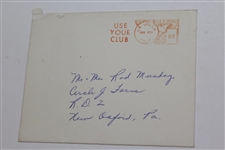 USE
YOUR
CLUB
Mr. Mrs Rod
Circle J Farm
R D 2
New Oxford, Pa.